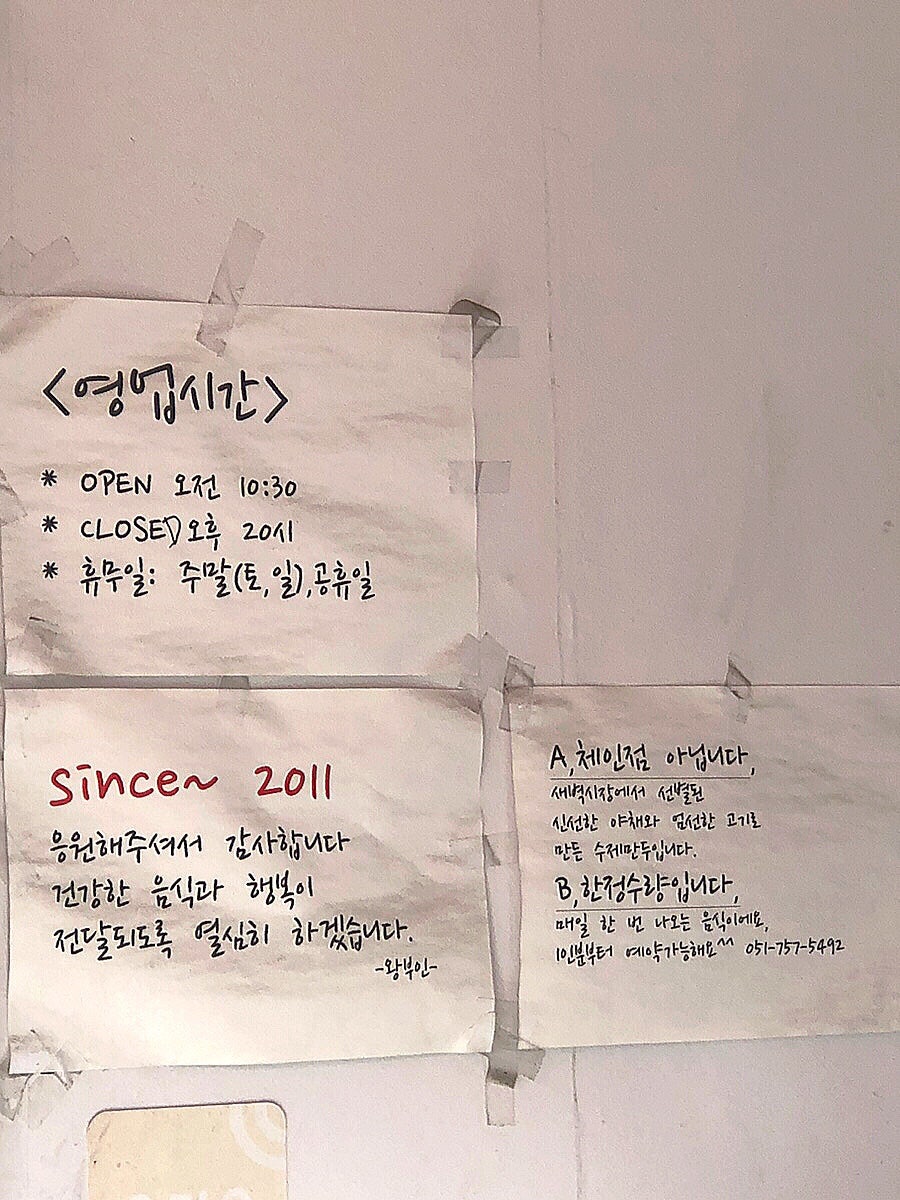 <영업시간>
* OPEN 오전 10:30
* CLOSED 오후 20시
* 휴무일: 주말(토,일),공휴일
since~ 2011
응원해주셔서 감사합니다
건강한 음식과 행복이
전달되도록 열심히 하겠습니다.
-왕부인-
A, 체인점 아닙니다,
새벽시장에서 선별된
신선한 야채와 엄선한 고기로
만든 수제만두입니다.
B, 한정수량입니다,
매일 한 번 나오는 음식이에요,
1인분부터 예약가능해요^^ 051-757-5492